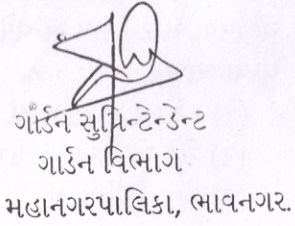 ગાર્ડન સુપ્રિન્ટેન્ડેન્ટ
ગાર્ડન વિભાગ
મહાનગરપાલિકા, ભાવનગર.